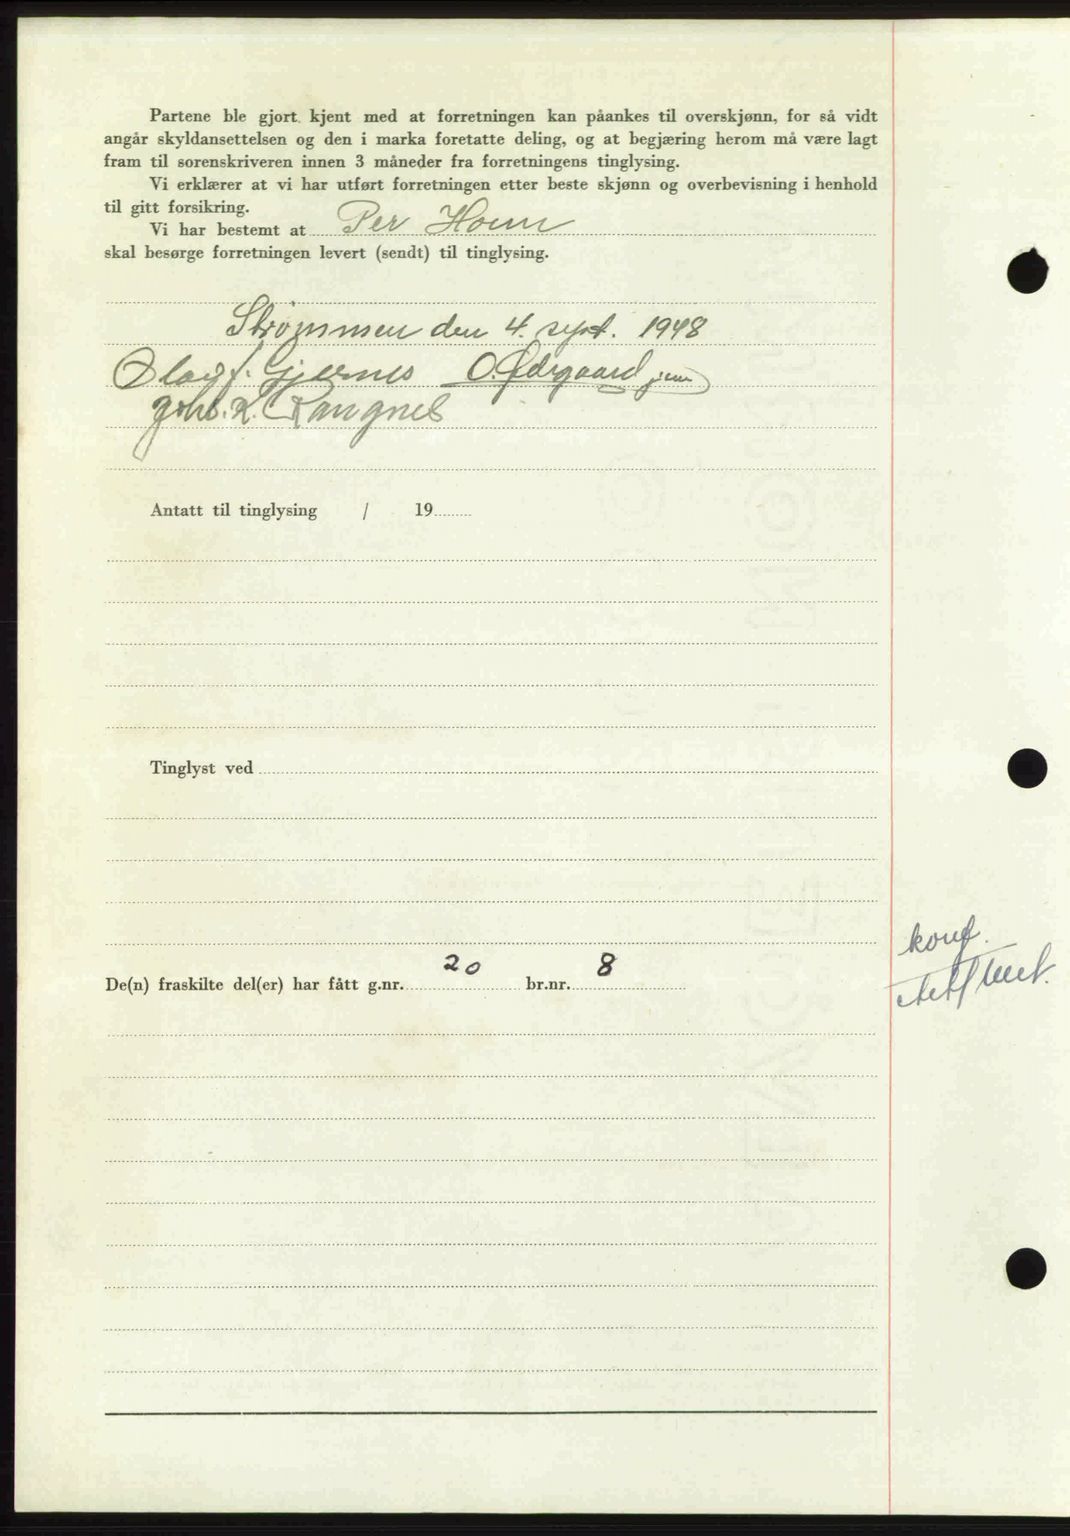 Partene ble gjort kjent med at forretningen kan påankes til overskjønn, for så vidt
angår skyldansettelsen og den i marka foretatte deling, og at begjæring herom må være lagt
fram til sorenskriveren innen 3 måneder fra forretningens tinglysing.
Vi erklærer at vi har utført forretningen etter beste skjønn og overbevisning i henhold
til gitt forsikring.
Vi har bestemt at Per
skal besørge forretningen levert (sendt) til tinglysing.
Strømmen den 4. sept. 1948
Olag J. Gjernes O. Ødegaard jun
Joh. K. Rangnes
Antatt til tinglysing / 19
Tinglyst ved
De(n) fraskilte del(er) har fått g.nr. 20 br.nr. 8
konf.